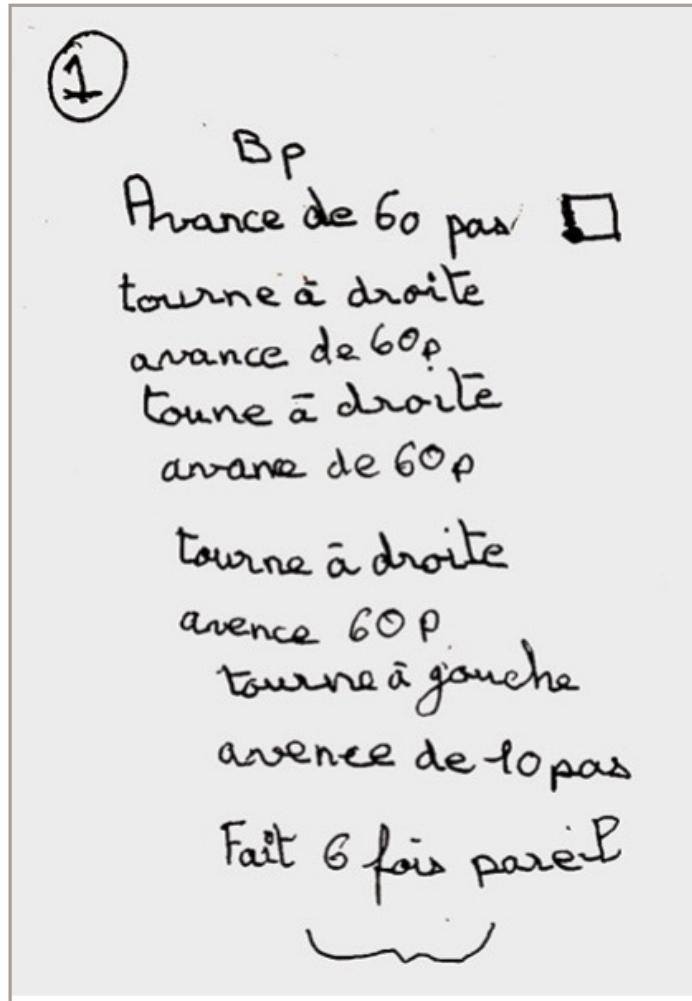 1
Bp
Avance de 60 pas
tourne à droite
avance de 60p
toune à droite
avance de 60p
tourne à droite
avence 60p
tourne à gauche
avence de 10 pas
Fait 6 fois pareil